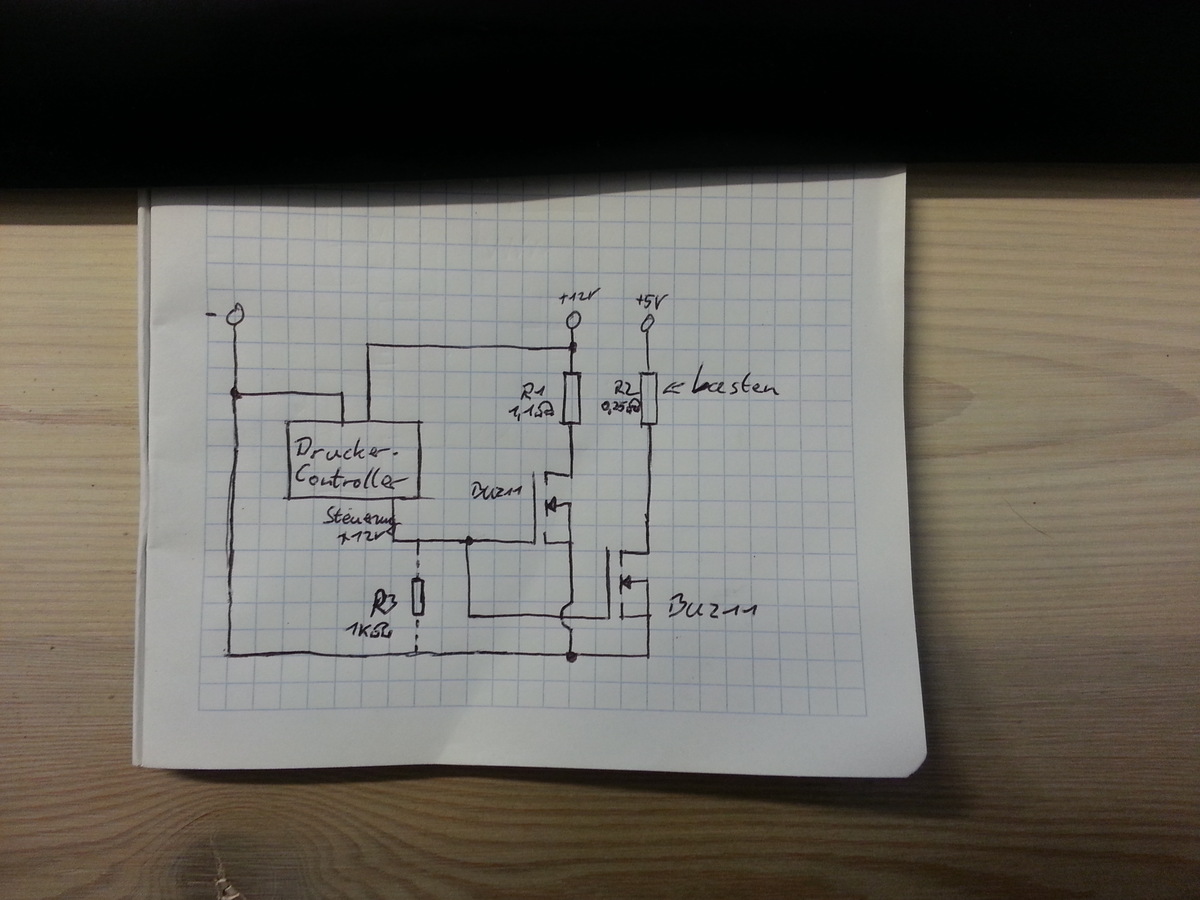 -
+12V
+5V
R1
1,1Ω
R2
0,25Ω
Drucker-
Controller
BUZ11
Steuerung
+12V
R3
1KΩ
BUZ11